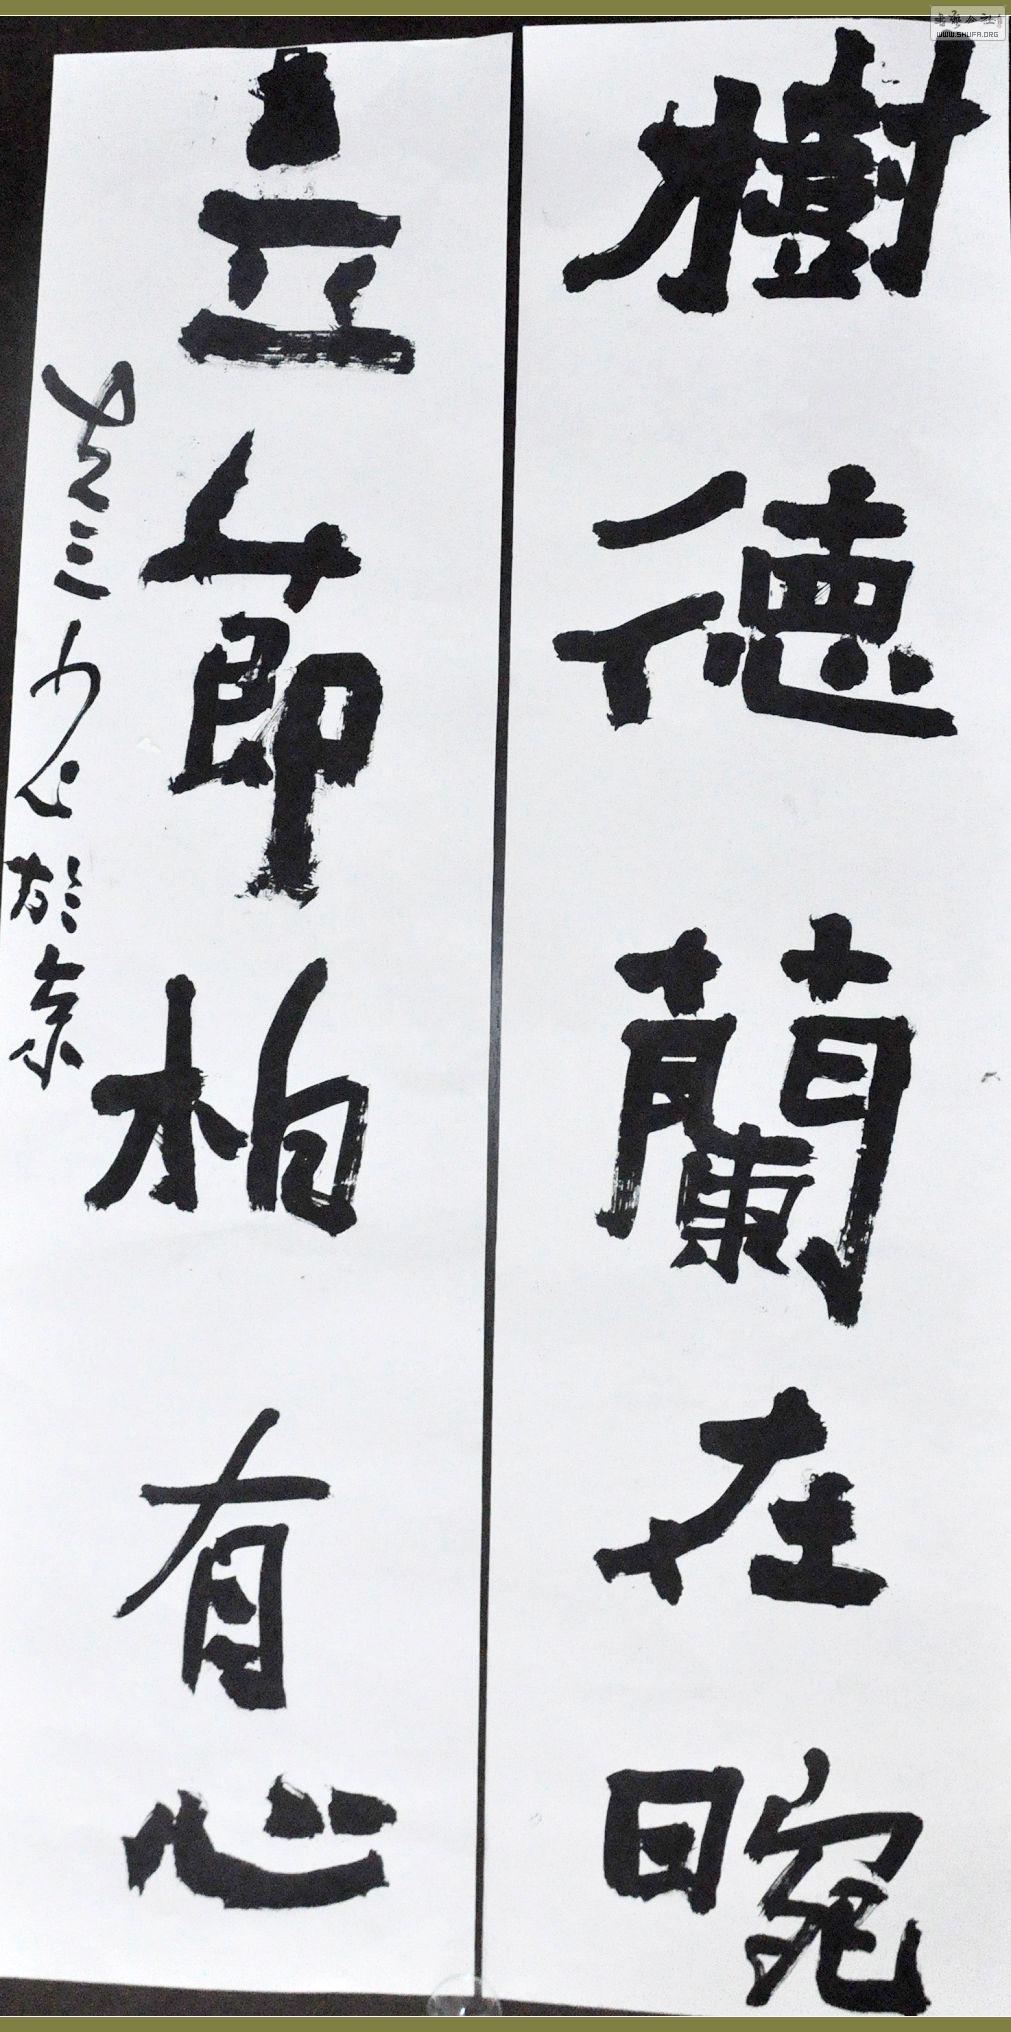 樹德蘭在畹
立節柏有心
於京
WWW.SHUFA.ORG